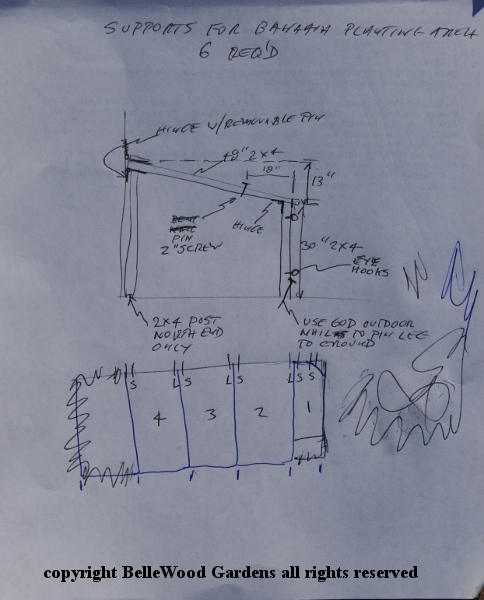 SUPPORTS FOR BANANA PLANTING AREA
6 REQ'D
HINGE W/REMOVABLE PIN
48" 2x4
18"
13"
PIN
2" SCREW
HINGE
30" 2x4
EYE
HOOKS
2x4 POST
NORTH END
ONLY
USE 60D OUTDOOR
NAILS TO PIN LEG
TO GROUND
S L S L S L S S
4 3 2 1
copyright BelleWood Gardens all rights reserved